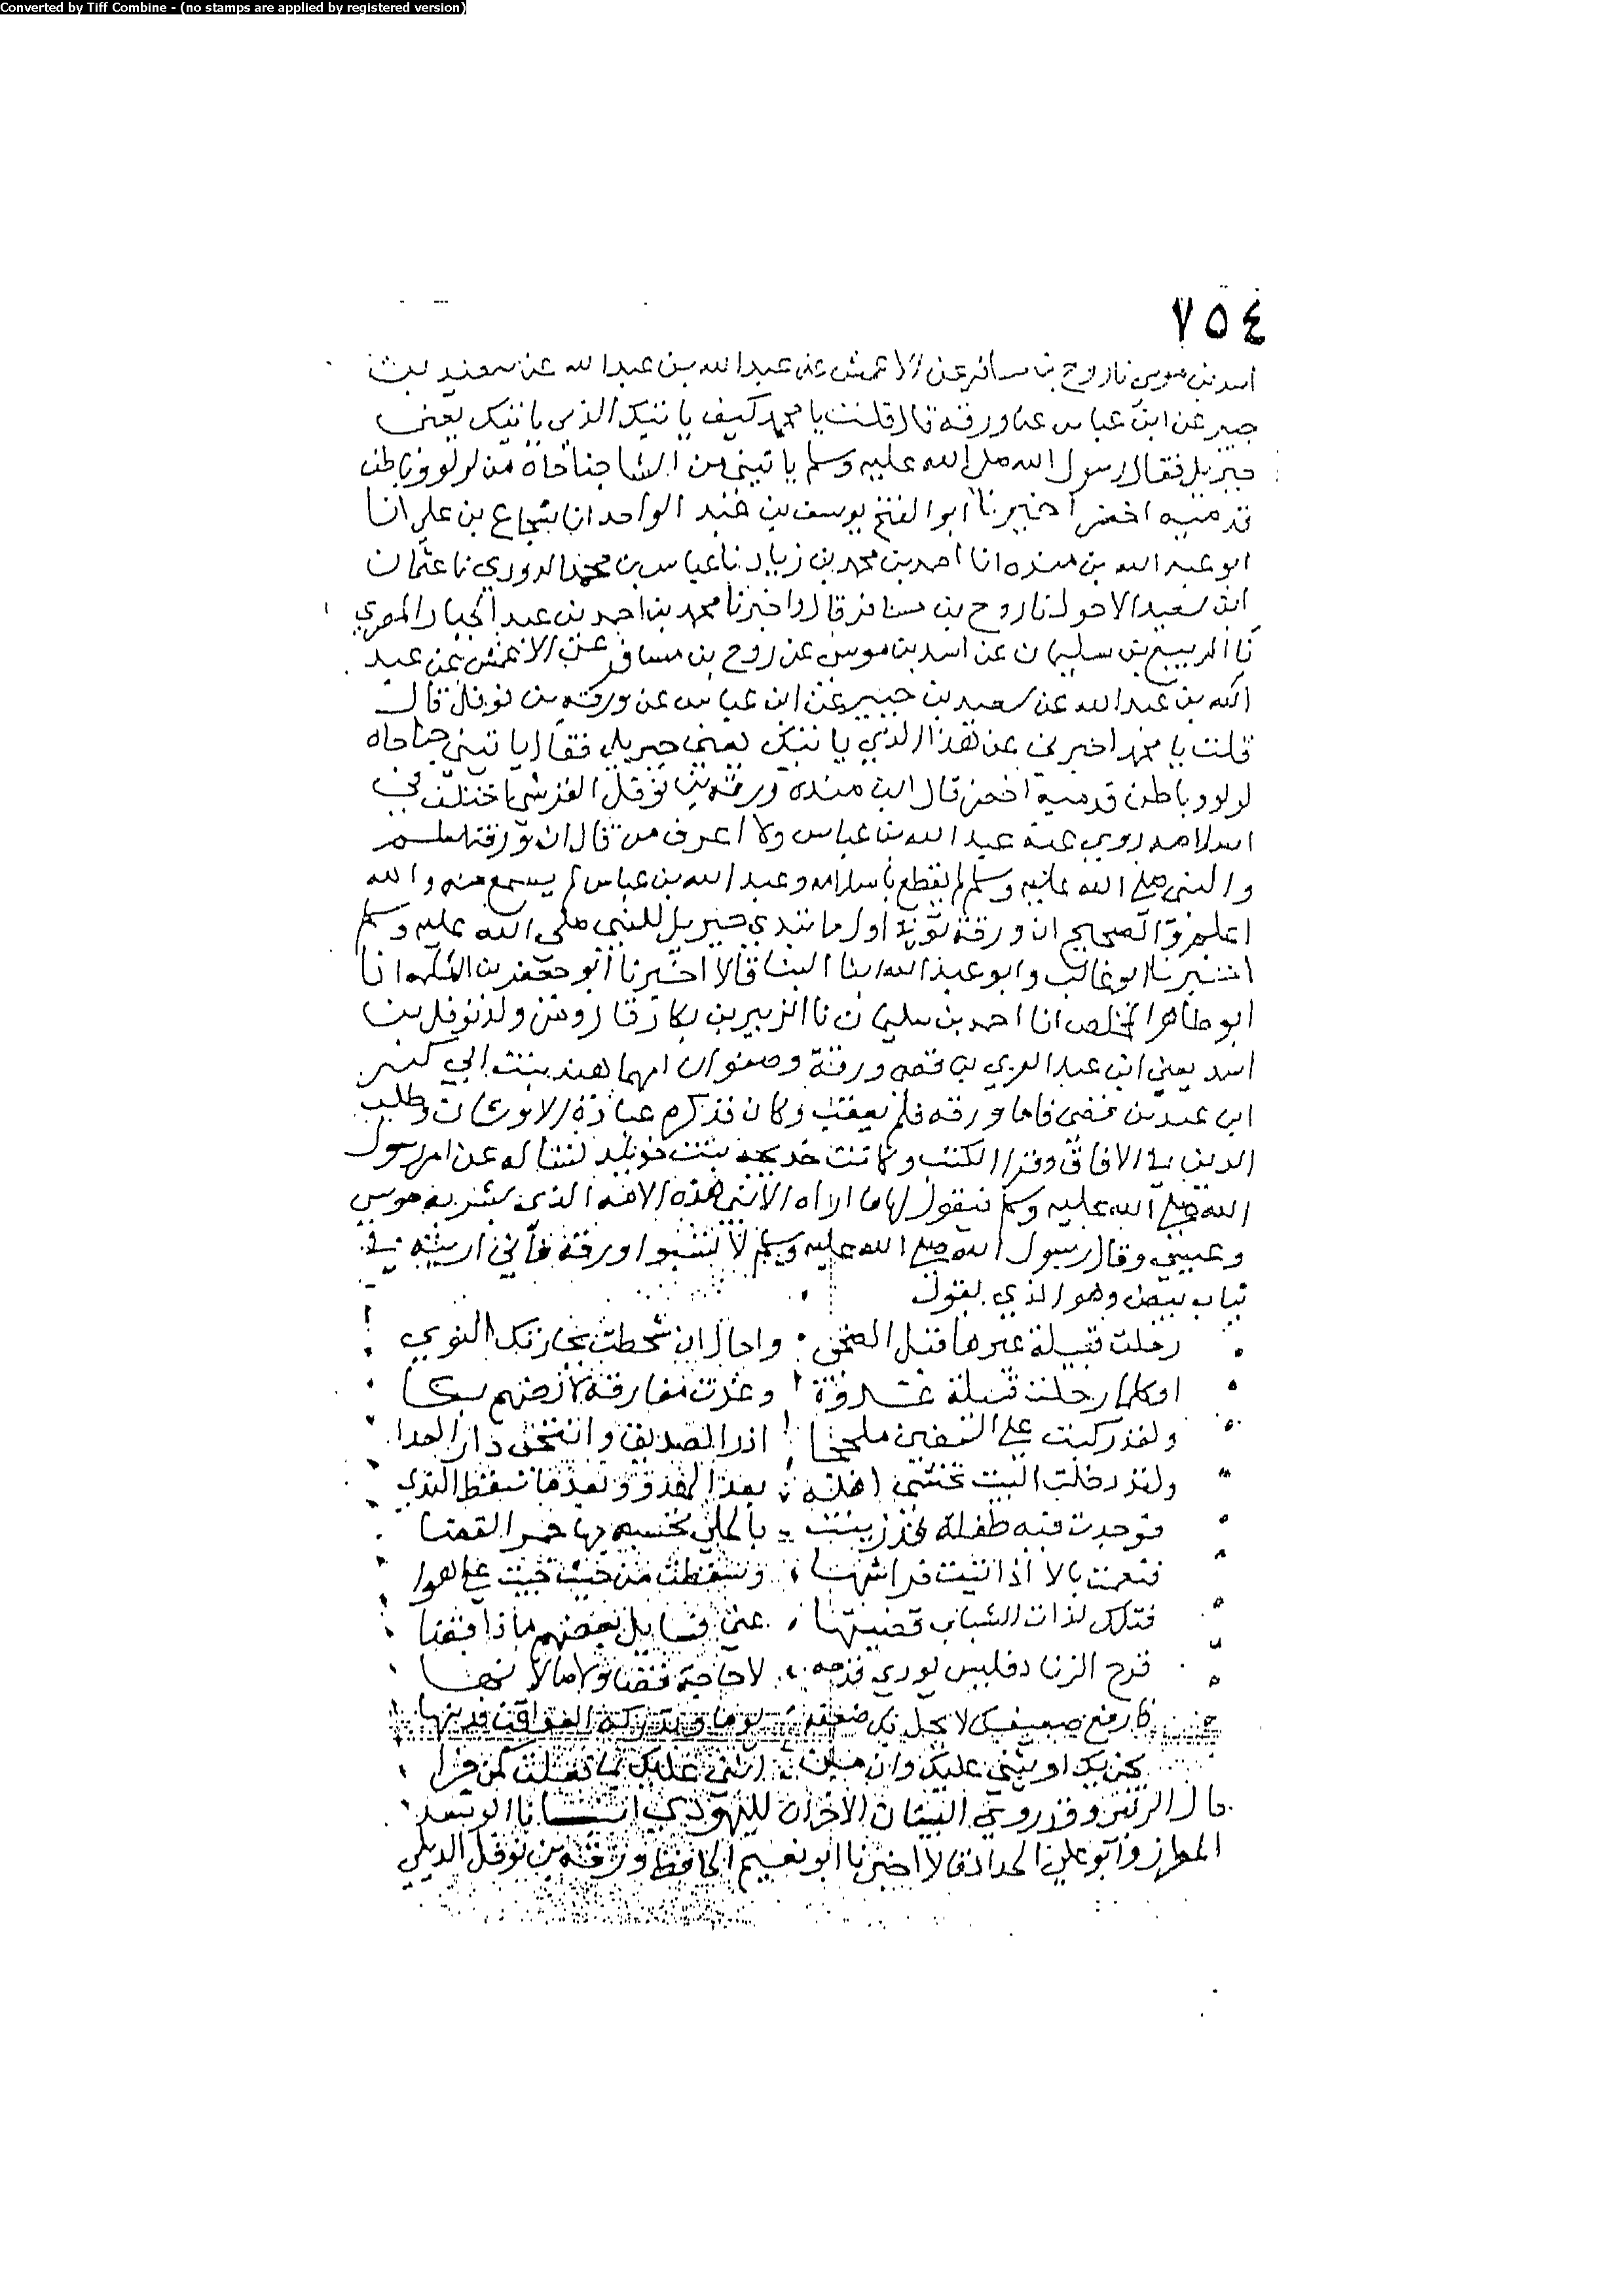 Converted by Tiff Combine - (no stamps are applied by registered version)
٧٥٤
اسد بن موسى نا روح بن مسافر عن الاعمش عن عبد الله بن عبد الله عن سعيد بن
جبير عن ابن عباس عن ورقه قال قلت يا محمد كيف ياتيك الذي ياتيك يعني
جبريل فقال رسول الله صلى الله عليه وسلم ياتيني من السما جناحاه من لولو وباطن
قدميه اخضر اخبرنا ابو الفتح يوسف بن عبد الواحد انا شجاع بن علي انا
ابو عبد الله بن منده انا احمد بن محمد بن زياد نا عباس بن محمد الدوري نا عثمان
ابن سعيد الاحول نا روح بن مسافر قال واخبرنا محمد بن احمد بن عبد الجبار المصري
نا الربيع بن سليمان عن اسد بن موسى عن روح بن مسافر عن الاعمش عن عبد
الله بن عبد الله عن سعيد بن جبير عن ابن عباس عن ورقه بن نوفل قال
قلت يا محمد اخبرني عن هذا الذي ياتيك يعني جبريل فقال ياتيني جناحاه
لولو وباطن قدميه اخضر قال ابن منده ورقه بن نوفل القرشي اختلف في
اسلامه روي عنه عبد الله بن عباس ولا اعرف من قال ان ورقه اسلم
والنبي صلى الله عليه وسلم لم يقطع باسلامه وعبد الله بن عباس لم يسمع منه والله
اعلم والصحيح ان ورقة توفي اول ما تبدي جبريل للنبي صلى الله عليه وسلم
اخبرنا ابو غالب وابو عبد الله ابنا البنا قالا اخبرنا ابو جعفر بن المسلمه انا
ابو طاهر المخلص انا احمد بن سليمان نا الزبير بن بكار قال ومن ولد نوفل بن
اسد يعني ابن عبد العزي بن قصي ورقة وصفوان امهما هند بنت ابي كبير
ابن عبد بن قصي فاما ورقه فلم يعقب وكان قد كره عبادة الاوثان وطلب
الدين في الافاق وقرا الكتب وكانت خديجه بنت خويلد تساله عن امر رسول
الله صلى الله عليه وسلم فيقول لها ما اراه الا نبي هذه الامه الذي بشر به موسى
وعيسى وقال رسول الله صلى الله عليه وسلم لا تسبوا ورقة فاني اريته في
ثياب بيض وهو الذي يقول
رحلت قتيلة عيرها قبل الضحى واخال ان شحطت بجارتك النوي
او كلما رحلت قتيلة غدوة وغدت مفارقة لارضهم بكا
ولقد ركبت على السفين ملججا اذر الصديق وانتحى دار العدا
ولقد دخلت البيت يخشى اهله بعد الهدو وبعدما سقط الندى
فوجدت فيه طفلة قد زينت بالحلي تحسبه بها جمر الغضا
فنعمت بالا اذ اتيت فراشها وسقطت منها حيث جيت على هوا
فتلك لذات الشباب قضيتها عني فسايل بعضهم ماذا قضا
قدح الزناد فليس يوري قدحه لا حاجة قضا ولا مالا نما
فارفع ضعيفك لا يحل بك ضعفه يوما فتدركه العواقب قد نما
يجزيك او يثني عليك وان من اثنى عليك بما فعلت كمن جزا
قال الزبير وقد روي البيتان الاخران لليهودي انبانا ابو سعد
المطرز وابو علي الحداد قالا اخبرنا ابو نعيم الحافظ ورقه بن نوفل الديلي